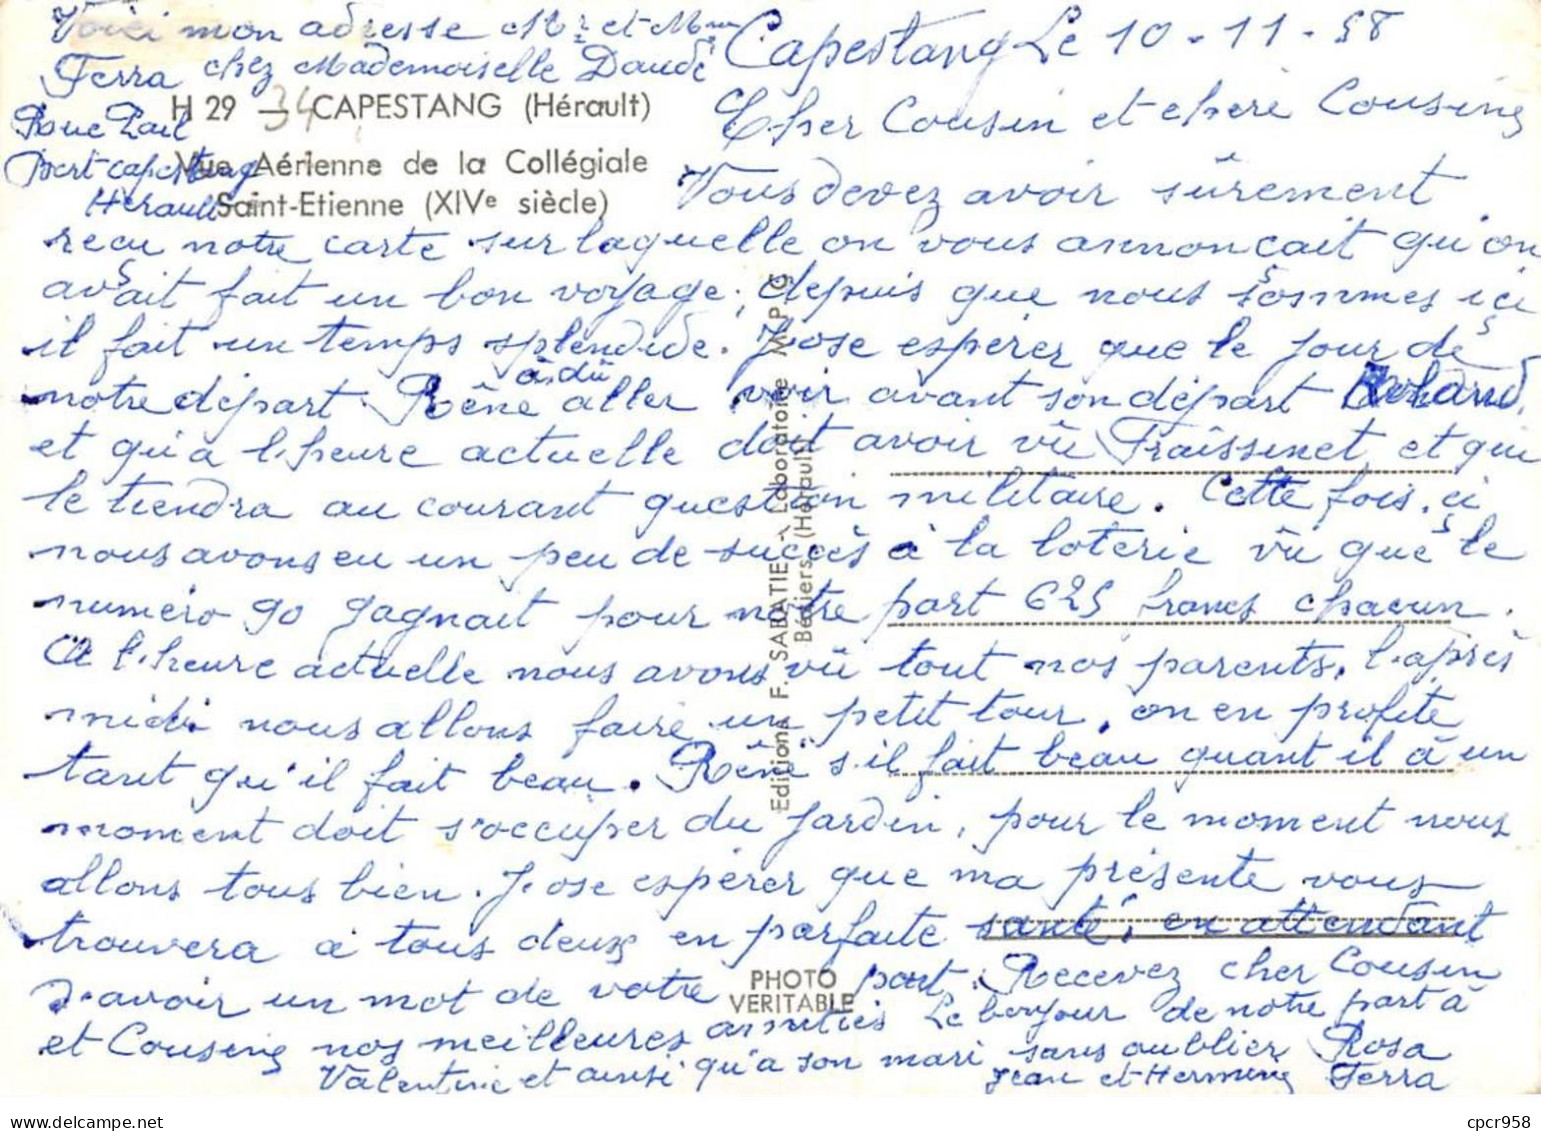 Voici mon adresse Mr et Mme
Ferra chez Mademoiselle Daudé
Rue
Port-capestang
Herault
H 29 - 34 CAPESTANG (Hérault)
Vue Aérienne de la Collégiale
Saint-Etienne (XIVe siècle)
Capestang Le 10-11-58
Cher Cousin et chère Cousine
Vous devez avoir sûrement
recu notre carte sur laquelle on vous annoncait qu'on
avait fait un bon voyage, depuis que nous sommes ici
il fait un temps splendide. J'ose espérer que le jour de
notre départ Réné à dû aller voir avant son départ
et qu'a l'heure actuelle doit avoir vû Fraîssinet et qui
le tiendra au courant question militaire. Cette fois-ci
nous avons eu un peu de succès à la loterie vû que le
numéro 90 gagnait pour notre part 625 francs chacun.
A l'heure actuelle nous avons vû tout nos parents, l'après
midi nous allons faire un petit tour, on en profite
tant qu'il fait beau. Réné s'il fait beau quant il à un
moment doit s'occuper du jardin, pour le moment nous
allons tous bien. J'ose espérer que ma présente vous
trouvera à tous deux en parfaite santé, en attendant
d'avoir un mot de votre part. Recevez cher Cousin
et Cousine nos meilleures amitiés Le bonjour de notre part à
Valentine et ainsi qu'a son mari sans oublier Rosa
Jean et Hermine Ferra
Editions F. SABATIE - Laboratoire M.P.G
Béziers (Hérault)
PHOTO
VERITABLE
cpcr958